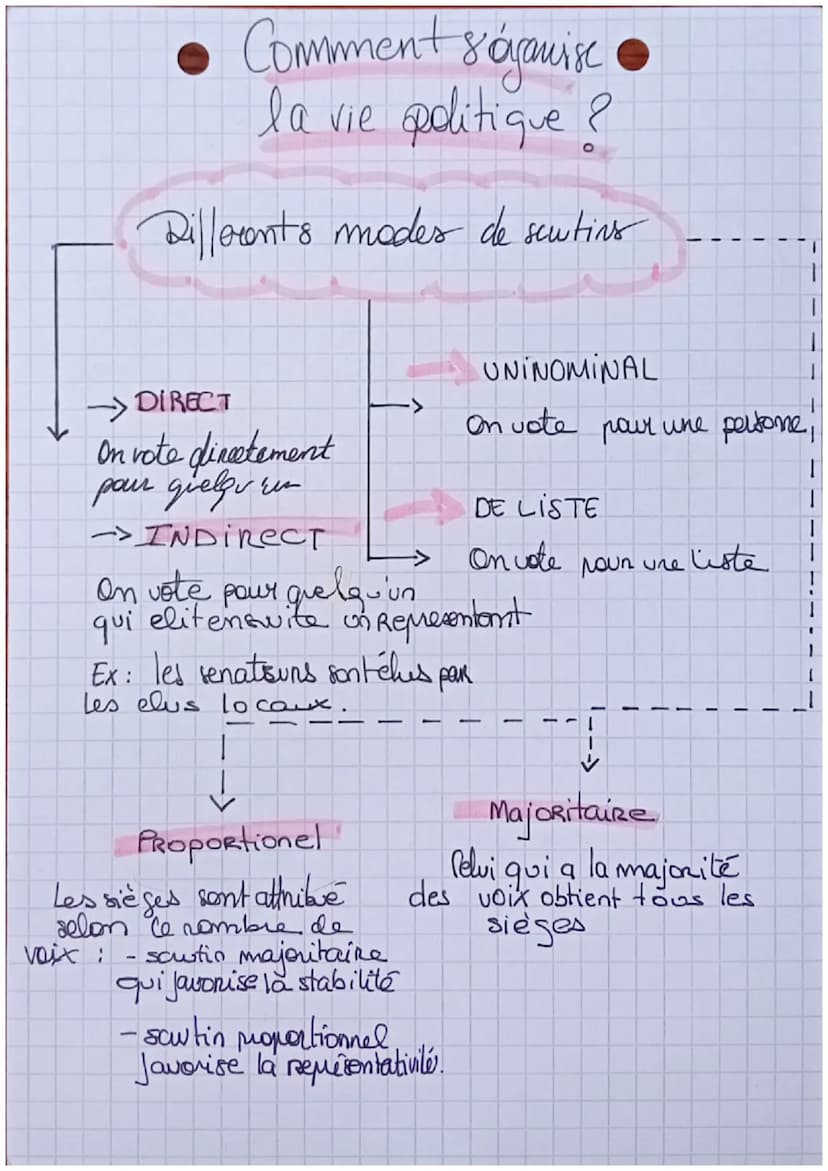 Comment s'éganise
la vie politique ?
Differents modes de scutins
→ DIRECT
On vote directement
pour quelqu'un
→ INDIRECT
On vote pour quelqu'un
qui elit ensuite un Representant
Ex : les senateurs sont élus par
les elus locaux.
UNINOMINAL
On vote pour une personne,
DE LISTE
On vote pour une liste
Proportionel
Les sièges sont attribué
selon le nombre de
voix : - scutin majoritaire
qui favorise la stabilité
- scutin proportionnel
favorise la représentativité.
Majoritaire
Celui qui a la majorité
des voix obtient tous les
sièges